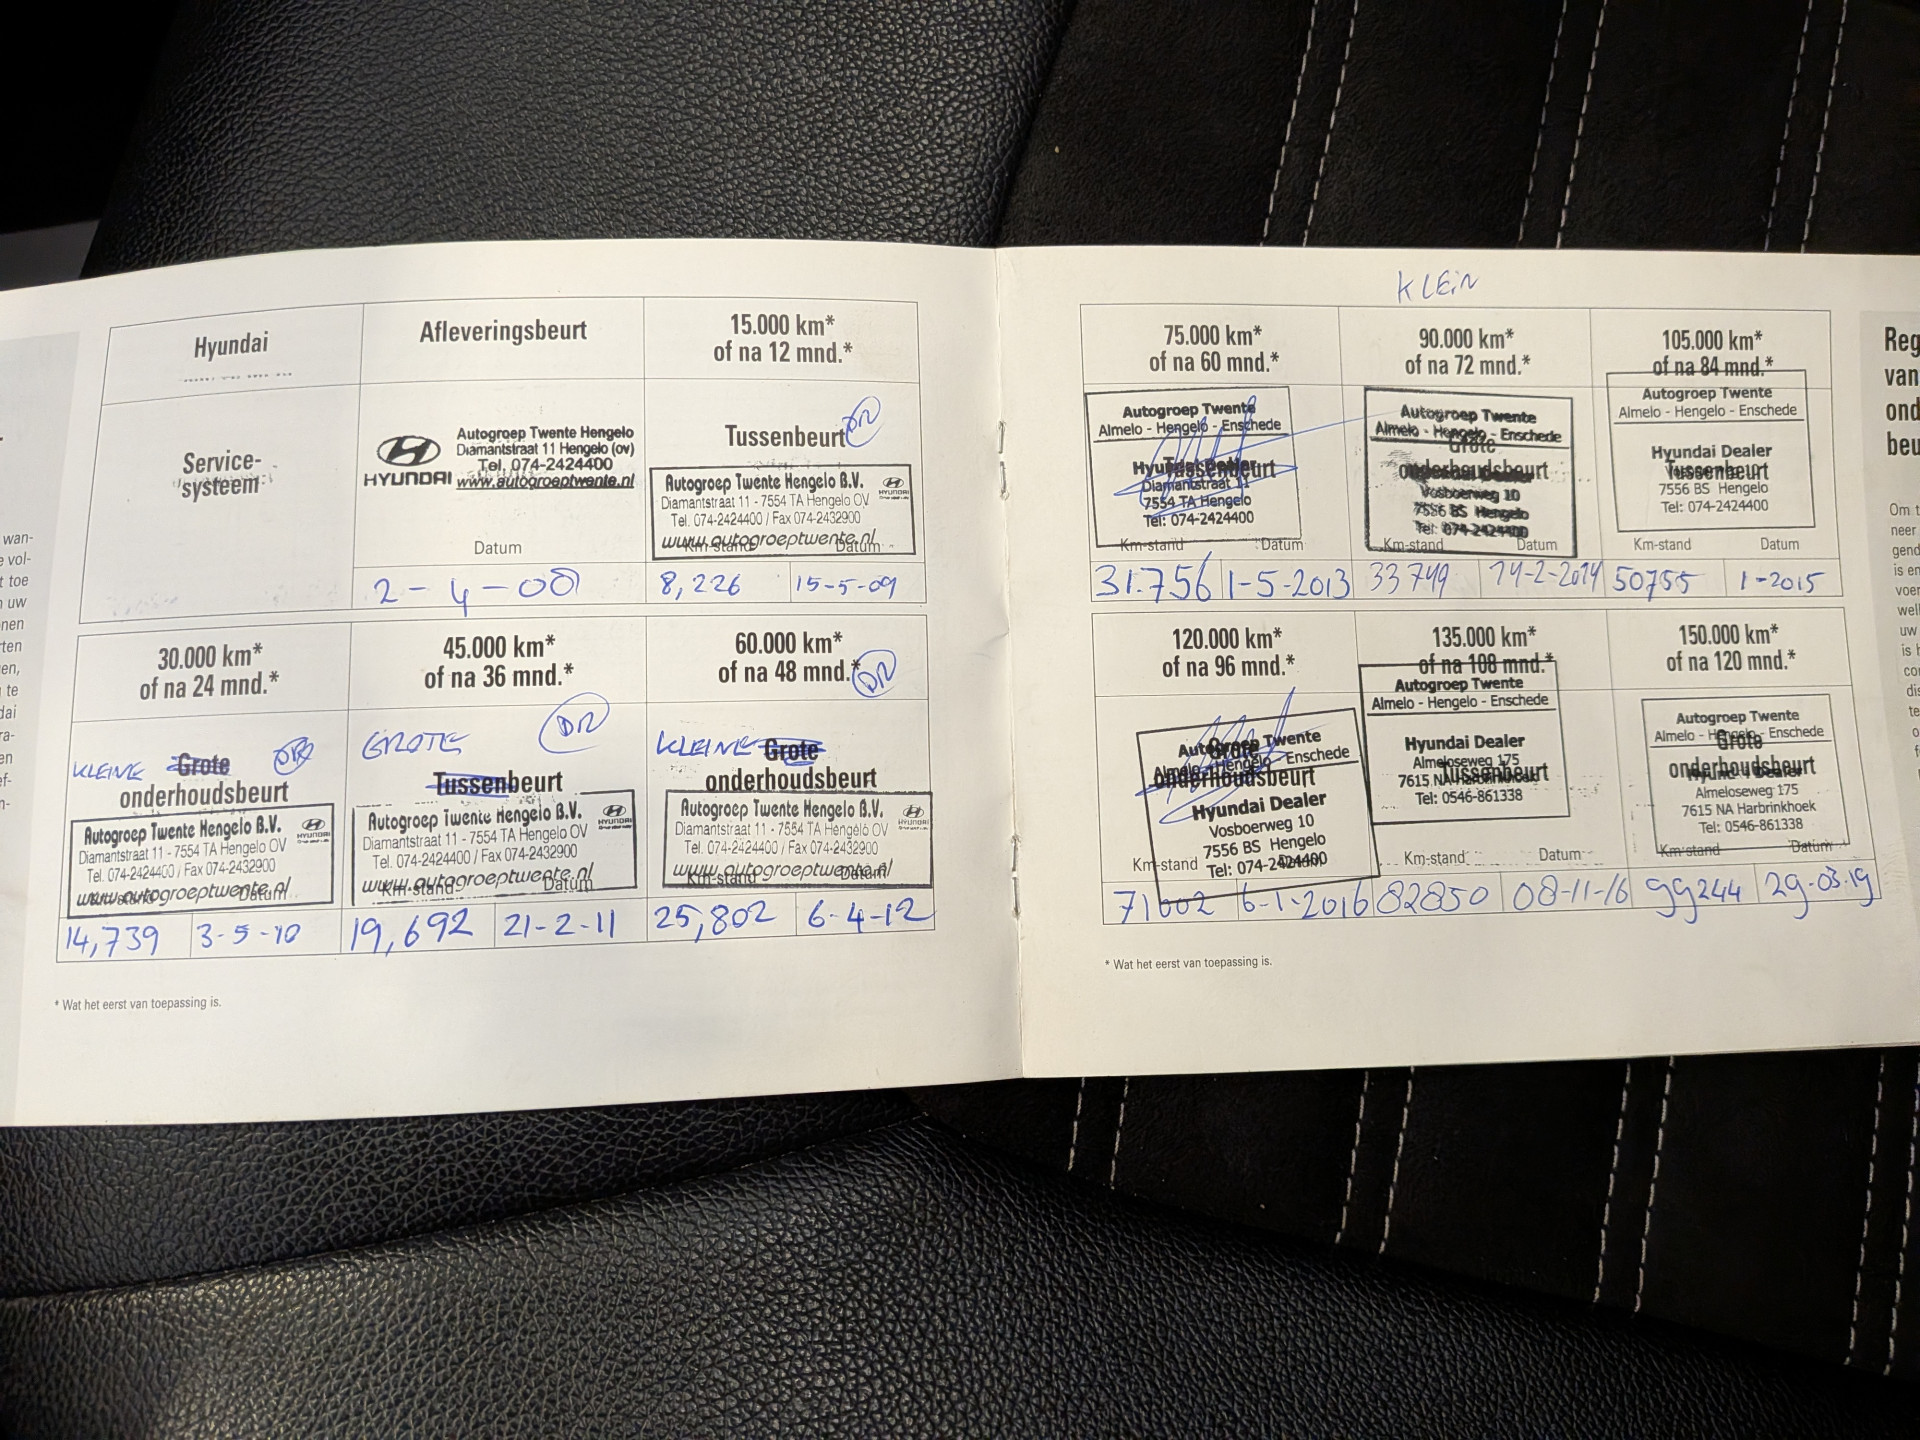 Hyundai
Service-
systeem
Afleveringsbeurt
HYUNDAI
Autogroep Twente Hengelo
Diamantstraat 11 Hengelo (ov)
Tel. 074-2424400
www.autogroeptwente.nl
Datum
2-4-08
15.000 km*
of na 12 mnd.*
Tussenbeurt
DR
Autogroep Twente Hengelo B.V.
Diamantstraat 11 - 7554 TA Hengelo OV
Tel. 074-2424400 / Fax 074-2432900
www.autogroeptwente.nl
HYUNDAI
Km-stand Datum
8,226 15-5-09
30.000 km*
of na 24 mnd.*
KLEINE Grote
onderhoudsbeurt
Autogroep Twente Hengelo B.V.
Diamantstraat 11 - 7554 TA Hengelo OV
Tel. 074-2424400 / Fax 074-2432900
www.autogroeptwente.nl
HYUNDAI
Datum
14,739 3-5-10
45.000 km*
of na 36 mnd.*
GROTE
DR
Tussenbeurt
Autogroep Twente Hengelo B.V.
Diamantstraat 11 - 7554 TA Hengelo OV
Tel. 074-2424400 / Fax 074-2432900
www.autogroeptwente.nl
HYUNDAI
Km-stand Datum
19,692 21-2-11
60.000 km*
of na 48 mnd.*
DR
KLEINE Grote
onderhoudsbeurt
Autogroep Twente Hengelo B.V.
Diamantstraat 11 - 7554 TA Hengelo OV
Tel. 074-2424400 / Fax 074-2432900
www.autogroeptwente.nl
HYUNDAI
Km-stand Datum
25,802 6-4-12
* Wat het eerst van toepassing is.
KLEIN
75.000 km*
of na 60 mnd.*
Autogroep Twente
Almelo - Hengelo - Enschede
Hyundai Dealer
Tussenbeurt
Diamantstraat 11
7554 TA Hengelo
Tel: 074-2424400
Km-stand Datum
31.756 1-5-2013
90.000 km*
of na 72 mnd.*
Autogroep Twente
Almelo - Hengelo - Enschede
Grote
onderhoudsbeurt
Vosboerweg 10
7556 BS Hengelo
Tel: 074-2424400
Km-stand Datum
33749 14-2-2014
105.000 km*
of na 84 mnd.*
Autogroep Twente
Almelo - Hengelo - Enschede
Hyundai Dealer
Tussenbeurt
7556 BS Hengelo
Tel: 074-2424400
Km-stand Datum
50755 1-2015
120.000 km*
of na 96 mnd.*
Autogroep Twente
Almelo - Hengelo - Enschede
Grote
onderhoudsbeurt
Hyundai Dealer
Vosboerweg 10
7556 BS Hengelo
Tel: 074-2424400
Km-stand Datum
71002 6-1-2016
135.000 km*
of na 108 mnd.*
Autogroep Twente
Almelo - Hengelo - Enschede
Hyundai Dealer
Almeloseweg 175
7615 NA Harbrinkhoek
Tussenbeurt
Tel: 0546-861338
Km-stand Datum
82850 08-11-16
150.000 km*
of na 120 mnd.*
Autogroep Twente
Almelo - Hengelo - Enschede
Grote
onderhoudsbeurt
Hyundai Dealer
Almeloseweg 175
7615 NA Harbrinkhoek
Tel: 0546-861338
Km-stand Datum
99244 29-03-19
* Wat het eerst van toepassing is.
Reg
van
ond
beu